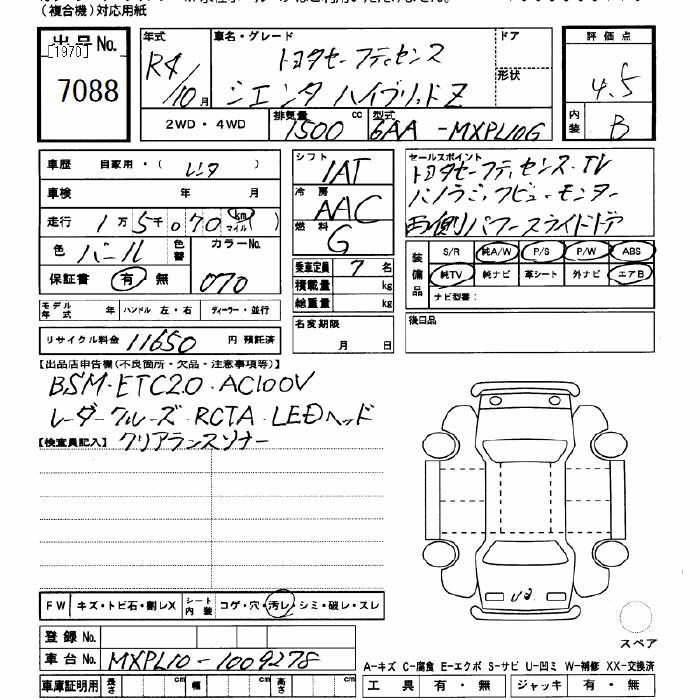 （複合機）対応用紙
出品No.
[1970]
7088
年式 R4/10月
車名・グレード トヨタセーフティセンス
シエンタ ハイブリッドZ
ドア
形状
評価点
4.5
内装 B
2WD・4WD
排気量 1500 cc
型式 6AA-MXPL10G
車歴 自家用・（レンタ）
車検 年 月
走行 1万5千070 km マイル（ ）
色 パール 色替 カラーNo. 070
保証書 有・無
シフト IAT
冷房 AAC
燃料 G
乗車定員 7名
積載量 kg
総重量 kg
セールスポイント
トヨタセーフティセンス・TV
パノラミックビューモニター
両側パワースライドドア
装備品 S/R 純A/W P/S P/W ABS
純TV 純ナビ 革シート 外ナビ エアB
ナビ型番：
モデル年式 年 ハンドル 左・右 ディーラー・並行
名変期限 月 日
後日品
リサイクル料金 11650 円 預託済
【出品店申告欄(不良箇所・欠品・注意事項等)】
BSM・ETC2.0・AC100V
レーダークルーズ・RCTA・LEDヘッド
クリアランスソナー
【検査員記入】
FW キズ・トビ石・割レX シート内装 コゲ・穴・汚レ・シミ・破レ・スレ
U2
スペア
登録No.
車台No. MXPL10-1009278
A-キズ C-腐食 E-エクボ S-サビ U-凹ミ W-補修 XX-交換済
車庫証明用 長さ cm 幅 cm 高さ cm
工具 有・無 ジャッキ 有・無